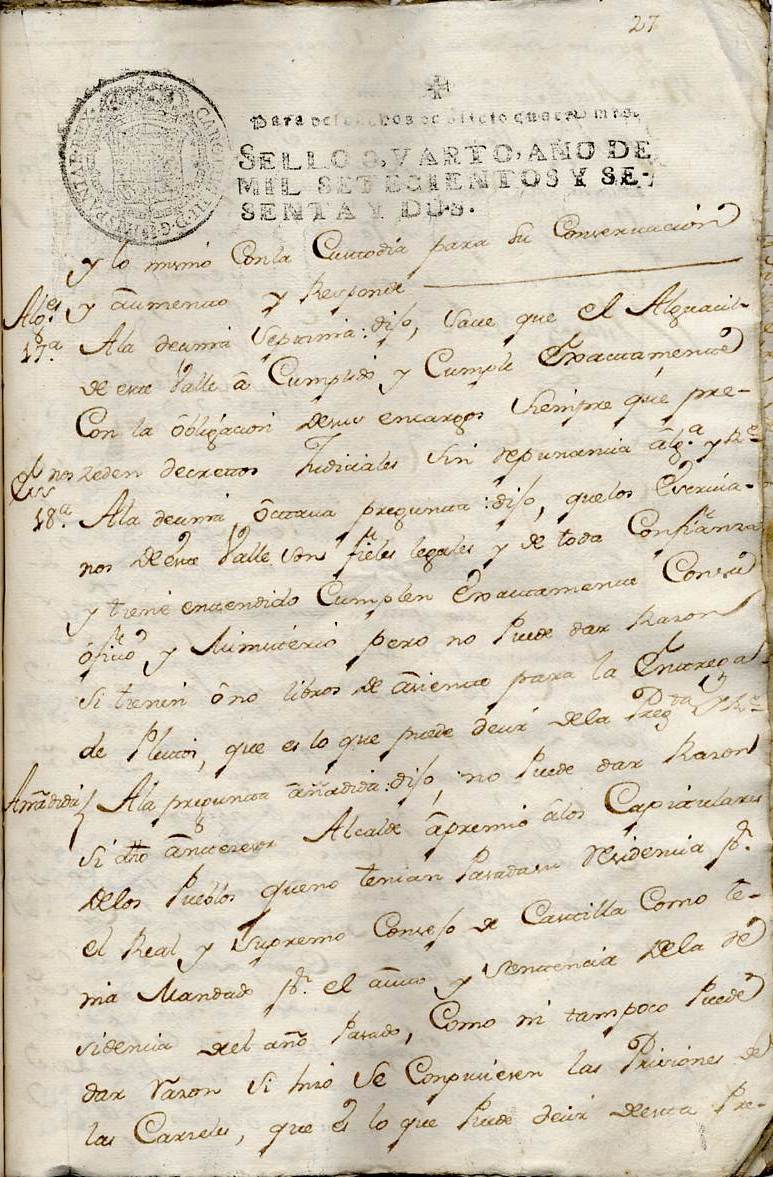 27
Para despachos de oficio quatro mrs.
SELLO QVARTO, AÑO DE
MIL SETECIENTOS Y SE-
SENTA Y DOS.
y lo mismo Conla Custodia para su Conservación
y aumento y Responde
Algˢ
17ª. Ala decima septima: dijo, save que el Alguacil
de este Valle â Cumplido y Cumple Exactamente
Con la obligacion desus encargos siempre que pre-
zeden decretos Judiciales sin repunancia âlgª. y Rᵉ
Essnos
18ª. Ala decima octava pregunta: dijo, quelos Escriva-
nos de este Valle son fieles legales y de toda Confianza
y tiene entendido Cumplen Exactamente Consu
oficio y Ministerio pero no Puede dar Razon
si tienen ô no libros de âsiento para la Entrega
de Pleitos, que es lo que puede decir dela Pregta y Rᵉ
Añadida Ala pregunta añadida: dijo, no Puede dar Razon
si dho anterior Alcalde âpremio âlos Capitulares
delos Pueblos queno tenian Pasada su Residencia pr.
el Real y Supremo Consejo de Castilla Como te-
nia Mandado pr. el auto y Sentencia dela Re
sidencia del año Pasado, Como ni tampoco Puede
dar razon si hizo se Conpusiesen las Prisiones de
las Carceles, que es lo que Puede decir desta Pre-